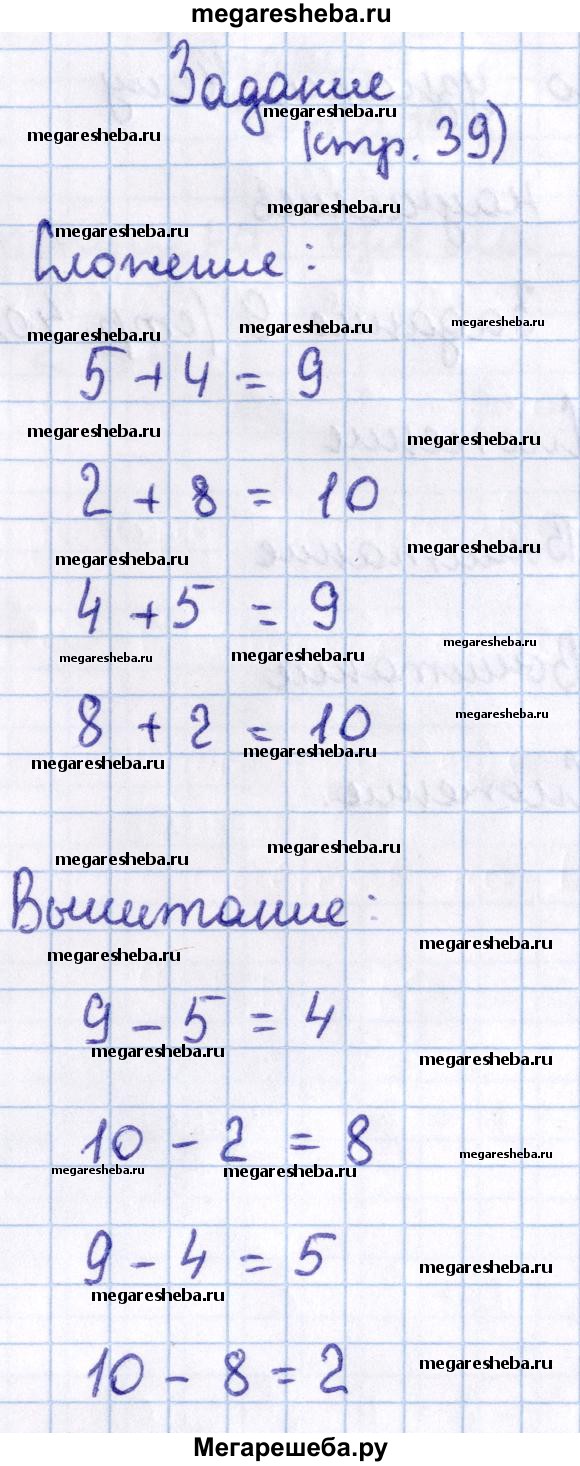 megaresheba.ru
Задание
megaresheba.ru
megaresheba.ru
(стр. 39)
megaresheba.ru
megaresheba.ru
Сложение:
megaresheba.ru
megaresheba.ru
megaresheba.ru
5 + 4 = 9
megaresheba.ru
megaresheba.ru
2 + 8 = 10
megaresheba.ru
megaresheba.ru
4 + 5 = 9
megaresheba.ru
megaresheba.ru
megaresheba.ru
8 + 2 = 10
megaresheba.ru
megaresheba.ru
megaresheba.ru
megaresheba.ru
megaresheba.ru
Вычитание:
megaresheba.ru
megaresheba.ru
9 - 5 = 4
megaresheba.ru
megaresheba.ru
10 - 2 = 8
megaresheba.ru
megaresheba.ru
megaresheba.ru
9 - 4 = 5
megaresheba.ru
megaresheba.ru
10 - 8 = 2
megaresheba.ru
Мегарешеба.ру